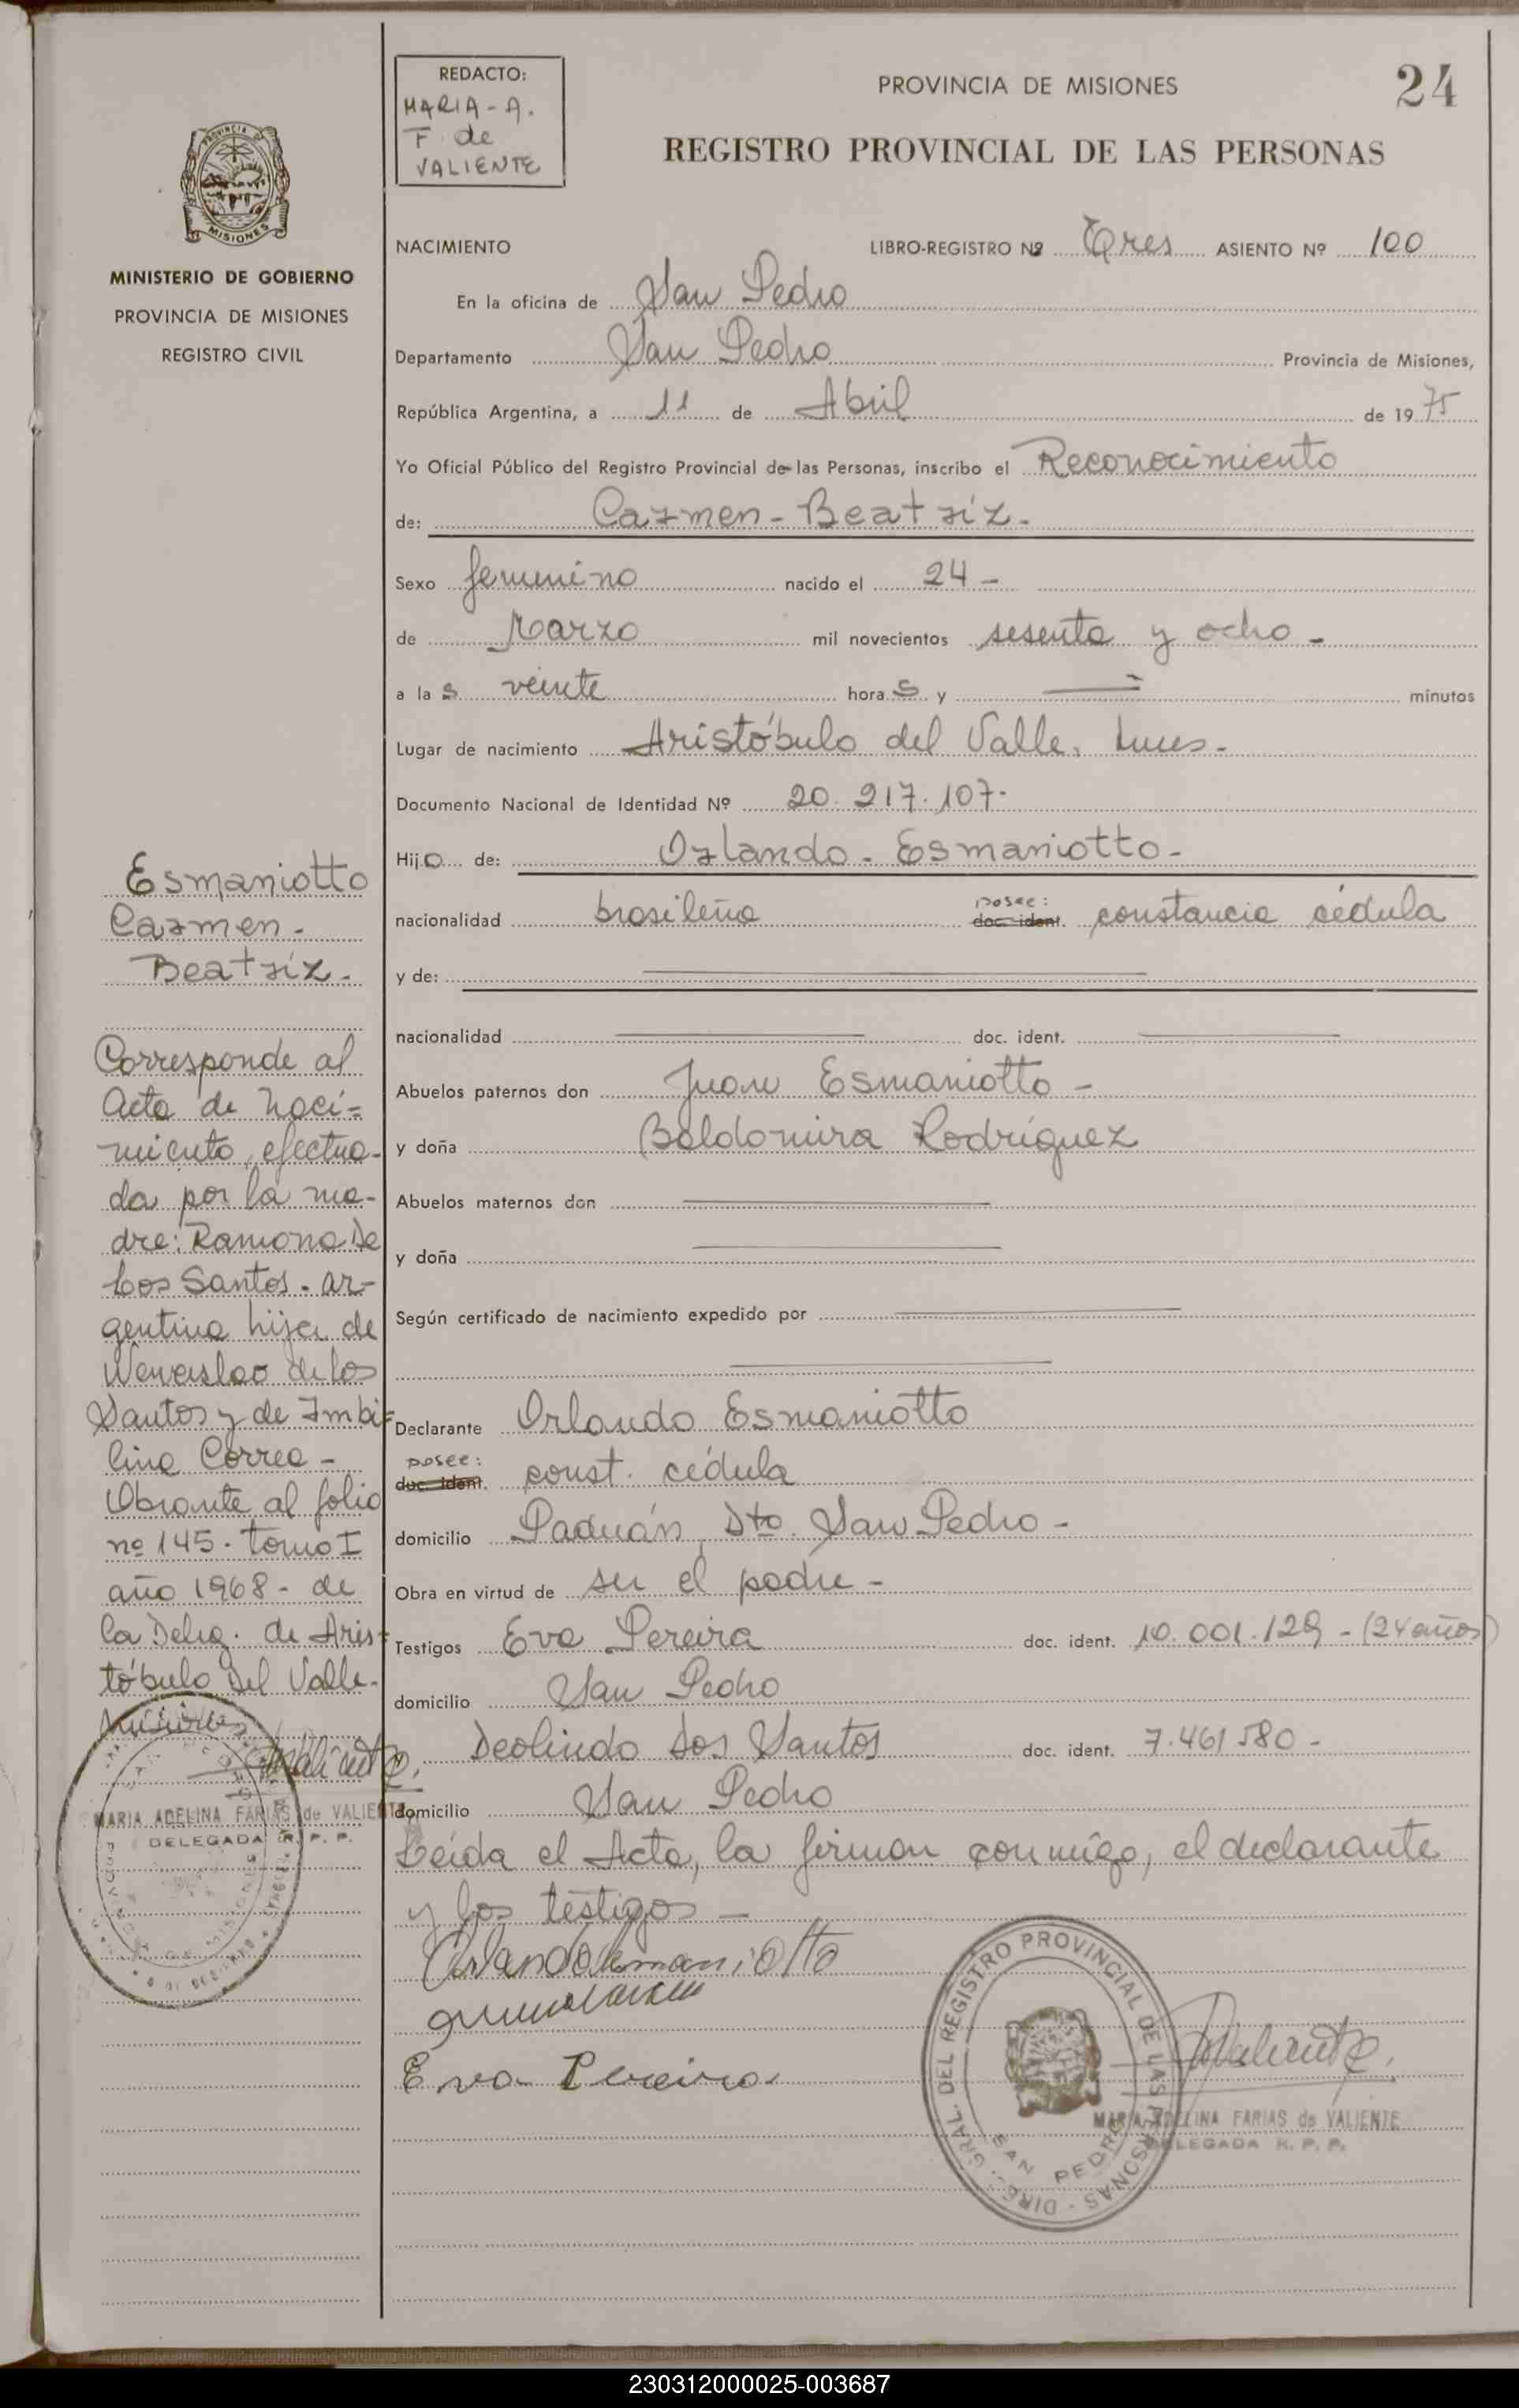 REDACTO:
MARIA-A.
F. de
VALIENTE
PROVINCIA DE MISIONES
24
REGISTRO PROVINCIAL DE LAS PERSONAS
MISIONES
MINISTERIO DE GOBIERNO
PROVINCIA DE MISIONES
REGISTRO CIVIL
NACIMIENTO LIBRO-REGISTRO Nº Tres ASIENTO Nº 100
En la oficina de San Pedro
Departamento San Pedro Provincia de Misiones,
República Argentina, a 11 de Abril de 1975
Yo Oficial Público del Registro Provincial de las Personas, inscribo el Reconocimiento
de: Carmen-Beatriz.
Sexo femenino nacido el 24-
de Marzo mil novecientos sesenta y ocho-
a las veinte horas y minutos
Lugar de nacimiento Aristóbulo del Valle,
Documento Nacional de Identidad Nº 20.217.107-
Hijo de: Orlando-Esmaniotto-
nacionalidad brasileña posee: doc. ident. constancia cédula
y de:
nacionalidad doc. ident.
Abuelos paternos don Juan Esmaniotto-
y doña Baldomira Rodríguez
Abuelos maternos don
y doña
Según certificado de nacimiento expedido por
Declarante Orlando Esmaniotto
posee:
doc. ident. const. cédula
domicilio Paduán, Dto. San Pedro-
Obra en virtud de ser el padre-
Testigos Eva Pereira doc. ident. 10.001.129-(24 años)
domicilio San Pedro
y Deolindo Dos Santos doc. ident. 7.461580-
domicilio San Pedro
Leída el Acta, la firman conmigo, el declarante
y los testigos-
Orlando Esmaniotto
Eva Pereira
Valiente
MARIA ADELINA FARIAS de VALIENTE
DELEGADA R. P. P.
DIREC. GRAL. DEL REGISTRO PROVINCIAL DE LAS PERSONAS
SAN PEDRO
Esmaniotto
Carmen-
Beatriz-
Corresponde al
Acta de naci=
miento, efectua-
da por la ma-
dre: Ramona De
Los Santos. ar-
gentina hija de
Wenceslao de los
Santos y de Imbi=
lina Correa-
Obrante al folio
nº 145. tomo I
año 1968- de
la Deleg. de Aris=
tóbulo del Valle.
Misiones
Valiente
MARIA ADELINA FARIAS de VALIENTE
DELEGADA R. P. P.
230312000025-003687